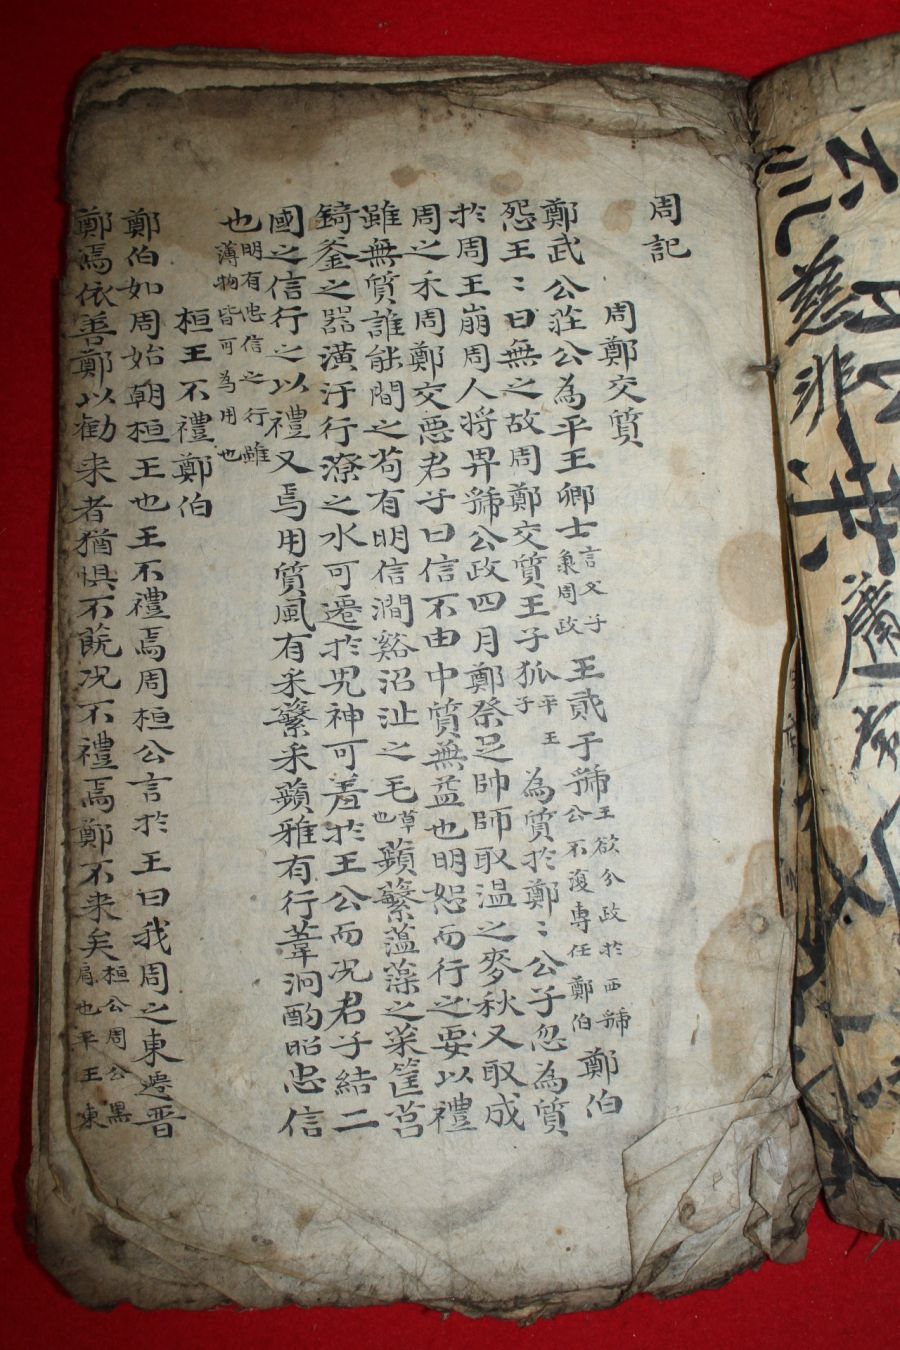 周記
周鄭交質
鄭武公莊公為平王卿士言父子秉周政王貳于虢王欲分政於西虢公不復專任鄭伯鄭伯
怨王〻曰無之故周鄭交質王子狐平王子為質於鄭〻公子忽為質
於周王崩周人將畀虢公政四月鄭祭足帥師取温之麥秋又取成
周之禾周鄭交惡君子曰信不由中質無益也明恕而行之要以禮
雖無質誰能間之苟有明信澗谿沼沚之毛草也蘋蘩薀藻之菜筐筥
錡釜之器潢汙行潦之水可遷於鬼神可羞於王公而况君子結二
國之信行之以禮又焉用質風有采蘩采蘋雅有行葦泂酌昭忠信
也明有忠信之行雖薄物皆可為用也
桓王不禮鄭伯
鄭伯如周始朝桓王也王不禮焉周桓公言於王曰我周之東遷晉
鄭焉依善鄭以勸来者猶惧不旣况不禮焉鄭不来矣桓公周公黒肩也平王東